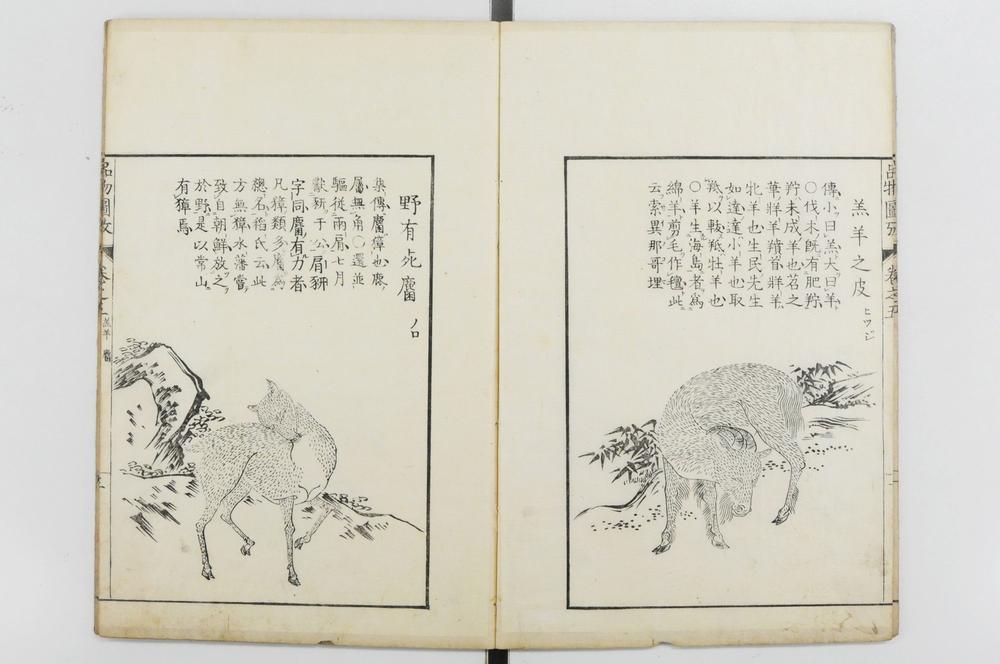 羔羊之皮 ヒツジ
傳小曰羔大曰羊
〇伐木既有肥羜
羜未成羊也苕之
華牂羊羵首牂羊
牝羊也生民先生
如達達小羊也取
羝以軷羝牡羊也
〇羊生海島者爲
綿羊剪毛作氊此
云索異那哥埋
品物圖攷
卷之五
野有死麕 ノロ
集傳麕獐也鹿
屬無角〇還並
驅從兩肩七月
獻豜于公肩豣
字同麕有力者
凡獐類多麕爲
總名稻氏云此
方無獐水藩嘗
致自朝鮮放之
於野是以常山
有獐焉
品物圖攷
羔羊 麕